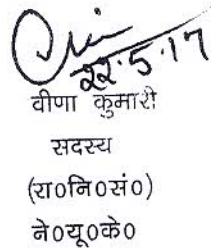 22.5.17
वीणा कुमारी
सदस्य
(रा०नि०सं०)
ने०यू०के०